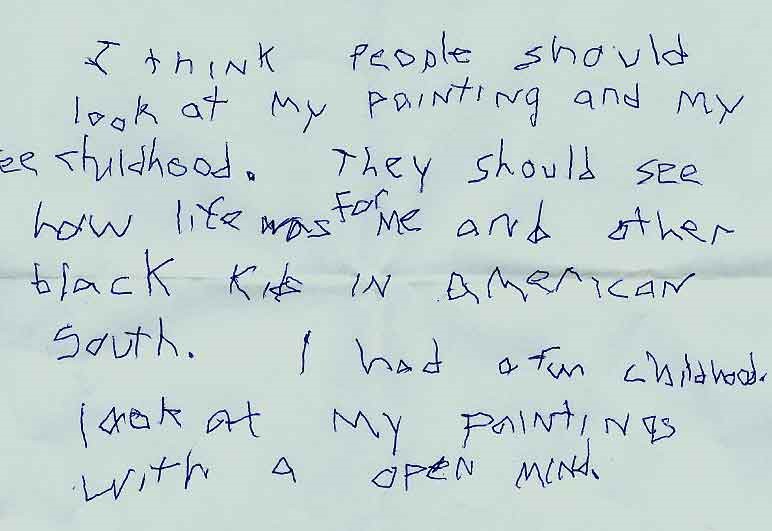 I think people should
look at my painting and my
ee chuldhood. They should see
how life was for me and other
black kids in american
south. I had a fun childhood.
look at my paintings
with a open mind.